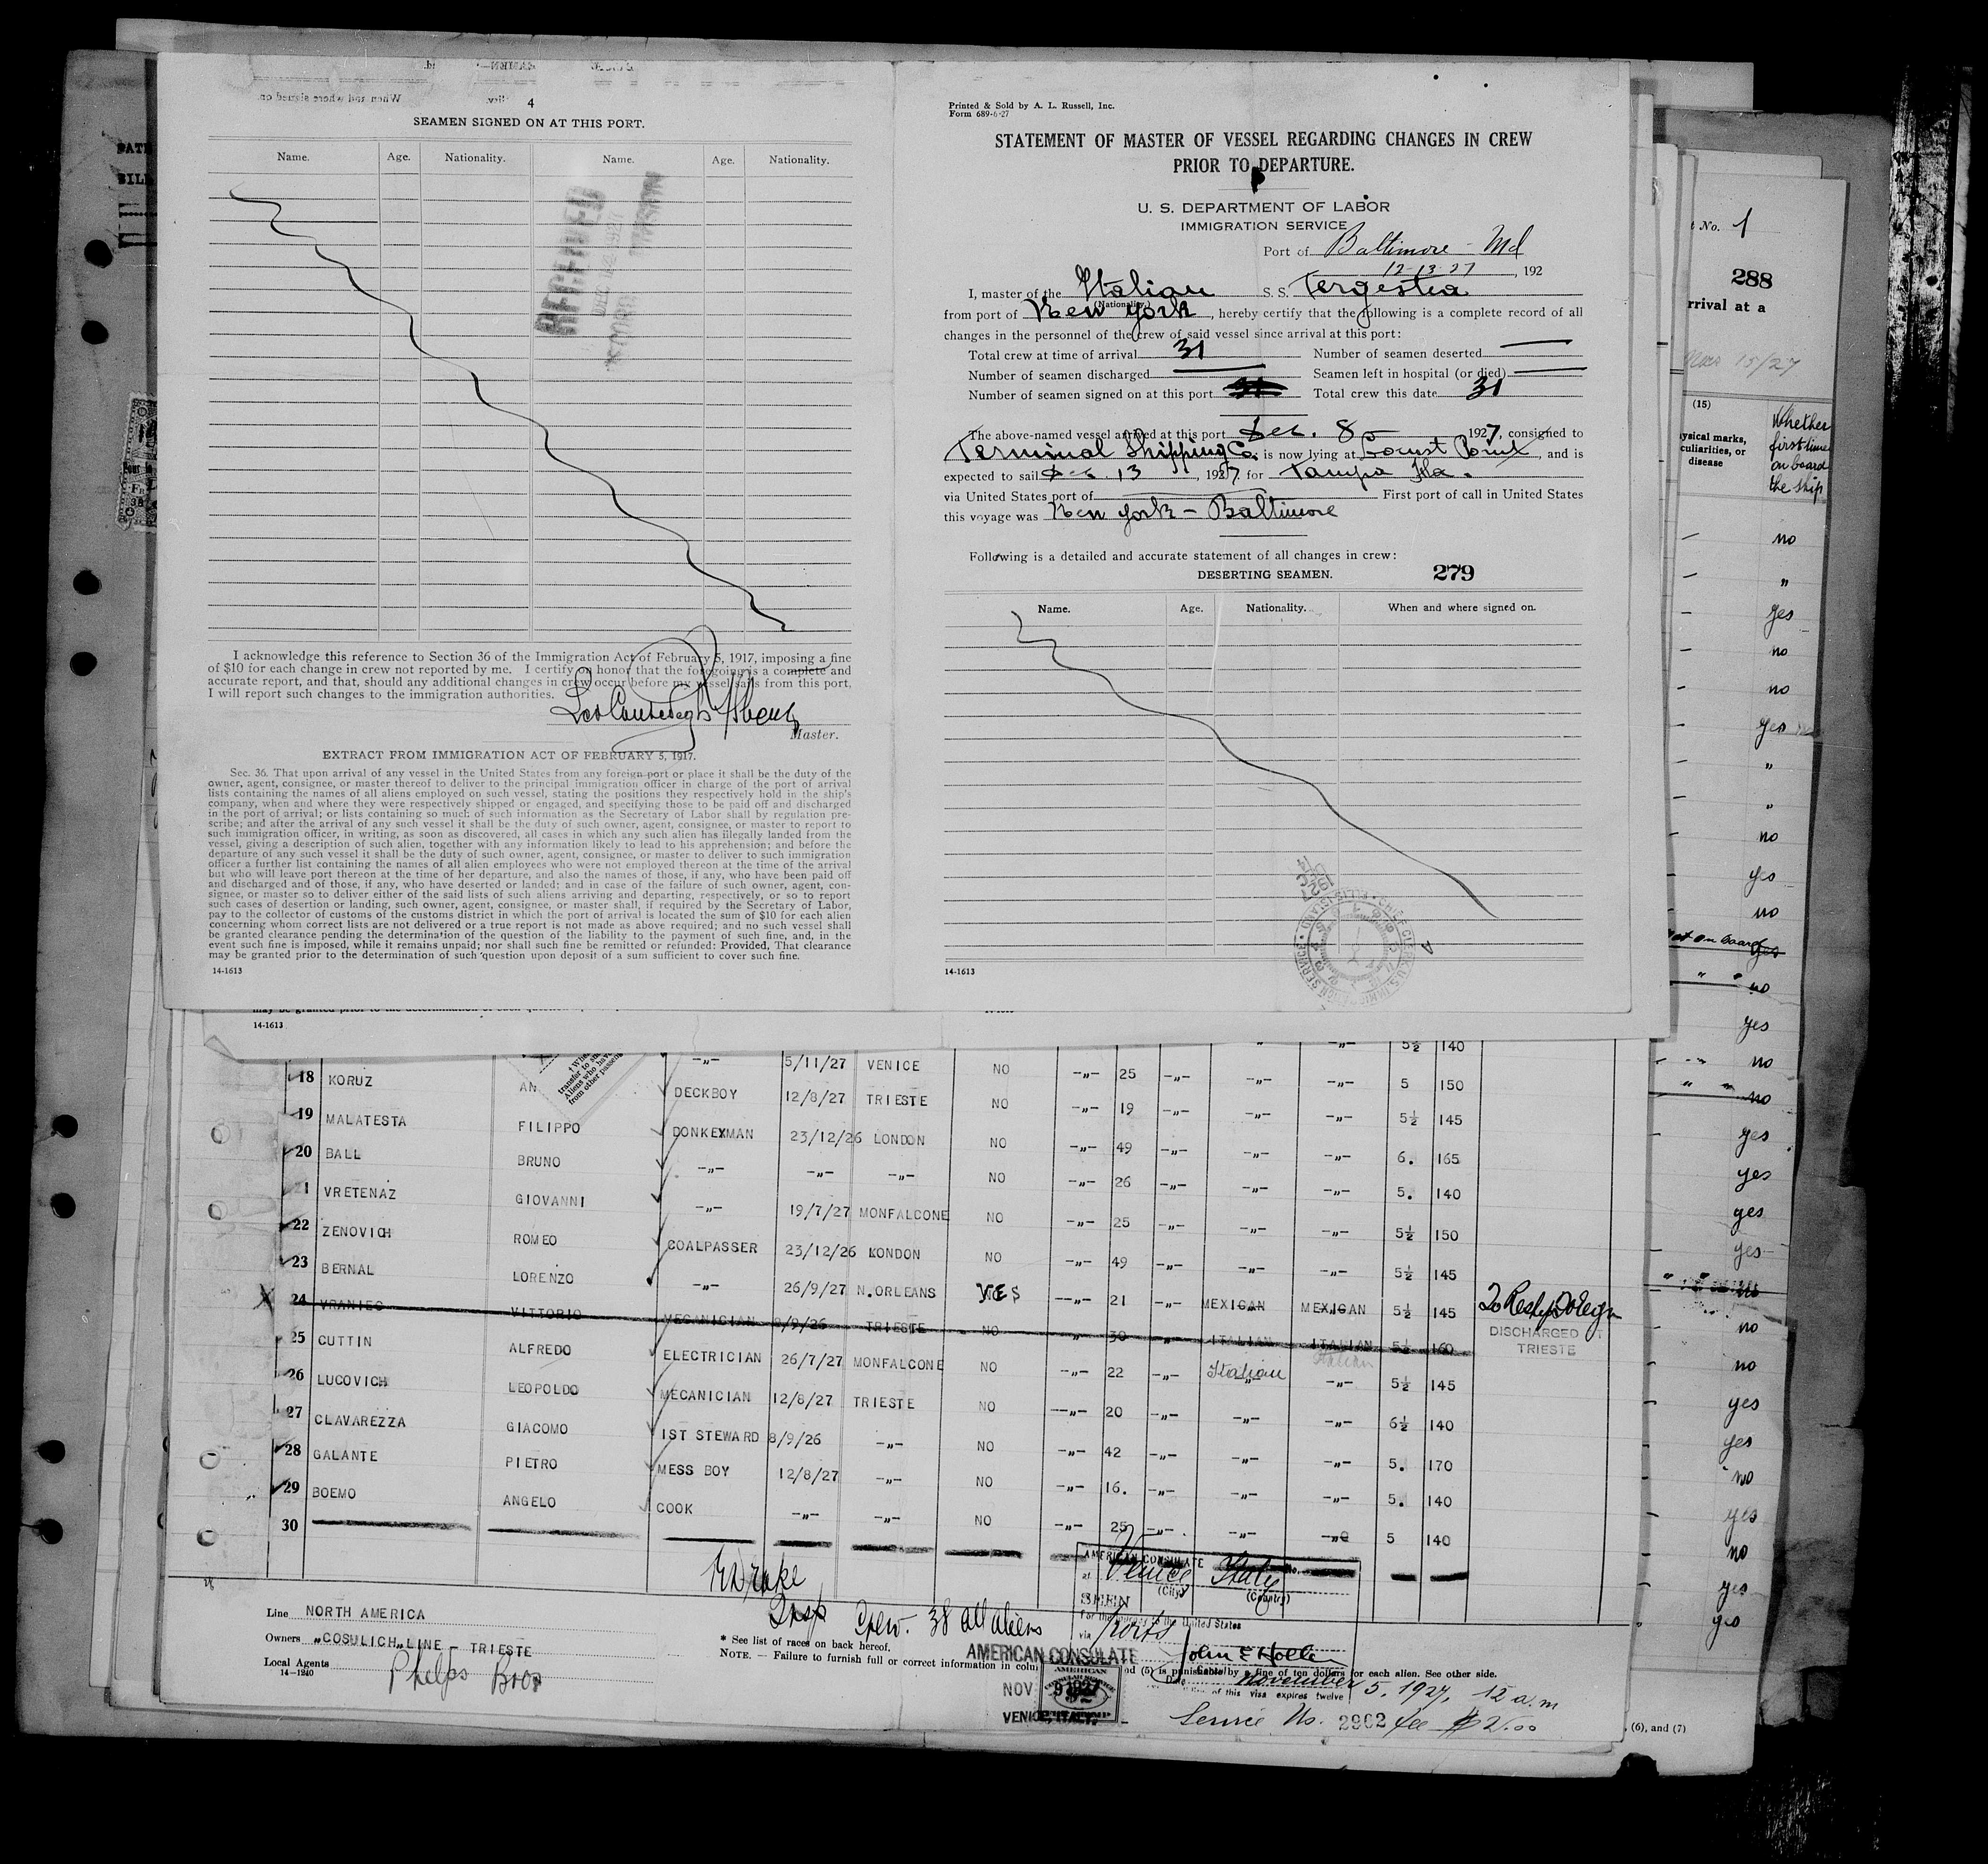 4
SEAMEN SIGNED ON AT THIS PORT.
Name. Age. Nationality. Name. Age. Nationality.
RECEIVED
I acknowledge this reference to Section 36 of the Immigration Act of February 5, 1917, imposing a fine
of $10 for each change in crew not reported by me. I certify on honor that the foregoing is a complete and
accurate report, and that, should any additional changes in crew occur before my vessel sails from this port,
I will report such changes to the immigration authorities.
Master.
EXTRACT FROM IMMIGRATION ACT OF FEBRUARY 5, 1917.
Sec. 36. That upon arrival of any vessel in the United States from any foreign port or place it shall be the duty of the
owner, agent, consignee, or master thereof to deliver to the principal immigration officer in charge of the port of arrival
lists containing the names of all aliens employed on such vessel, stating the positions they respectively hold in the ship's
company, when and where they were respectively shipped or engaged, and specifying those to be paid off and discharged
in the port of arrival; or lists containing so much of such information as the Secretary of Labor shall by regulation pre-
scribe; and after the arrival of any such vessel it shall be the duty of such owner, agent, consignee, or master to report to
such immigration officer, in writing, as soon as discovered, all cases in which any such alien has illegally landed from the
vessel, giving a description of such alien, together with any information likely to lead to his apprehension; and before the
departure of any such vessel it shall be the duty of such owner, agent, consignee, or master to deliver to such immigration
officer a further list containing the names of all alien employees who were not employed thereon at the time of the arrival
but who will leave port thereon at the time of her departure, and also the names of those, if any, who have been paid off
and discharged and of those, if any, who have deserted or landed; and in case of the failure of such owner, agent, con-
signee, or master so to deliver either of the said lists of such aliens arriving and departing, respectively, or so to report
such cases of desertion or landing, such owner, agent, consignee, or master shall, if required by the Secretary of Labor,
pay to the collector of customs of the customs district in which the port of arrival is located the sum of $10 for each alien
concerning whom correct lists are not delivered or a true report is not made as above required; and no such vessel shall
be granted clearance pending the determination of the question of the liability to the payment of such fine, and, in the
event such fine is imposed, while it remains unpaid; nor shall such fine be remitted or refunded: Provided, That clearance
may be granted prior to the determination of such question upon deposit of a sum sufficient to cover such fine.
14-1613
Printed & Sold by A. L. Russell, Inc.
Form 689-6-27
STATEMENT OF MASTER OF VESSEL REGARDING CHANGES IN CREW
PRIOR TO DEPARTURE.
U. S. DEPARTMENT OF LABOR
IMMIGRATION SERVICE
Port of Baltimore - Md
12-13-27, 192
I, master of the Italian S. S. Tergestea
(Nationality)
from port of New York, hereby certify that the following is a complete record of all
changes in the personnel of the crew of said vessel since arrival at this port:
Total crew at time of arrival 31 Number of seamen deserted —
Number of seamen discharged — Seamen left in hospital (or died) —
Number of seamen signed on at this port Total crew this date 31
The above-named vessel arrived at this port Dec. 8 1927, consigned to
Terminal Shipping Co. is now lying at Locust Point, and is
expected to sail Dec 13, 1927 for Tampa Fla.
via United States port of — First port of call in United States
this voyage was New York - Baltimore
Following is a detailed and accurate statement of all changes in crew:
DESERTING SEAMEN. 279
Name. Age. Nationality. When and where signed on.
14-1613
No. 1
288
rrival at a
15/27
(15)
ysical marks,
culiarities, or
disease
Whether
first time
on board
the ship
no
"
yes
no
no
yes
"
"
no
yes
no
not on board yes
" " no
yes
no
" " no
yes
yes
yes
yes
no
no
no
yes
yes
no
yes
no
yes
yes
14-1613
—"— 5/11/27 VENICE NO —"— 25 —"— —"— —"— 5½ 140
18 KORUZ AN DECKBOY 12/8/27 TRIESTE NO —"— 19 —"— —"— —"— 5 150
19 MALATESTA FILIPPO DONKEYMAN 23/12/26 LONDON NO —"— 49 —"— —"— —"— 5½ 145
20 BALL BRUNO —"— —"— —"— NO —"— 26 —"— —"— —"— 6. 165
21 VRETENAZ GIOVANNI —"— 19/7/27 MONFALCONE NO —"— 25 —"— —"— —"— 5. 140
22 ZENOVICH ROMEO COALPASSER 23/12/26 LONDON NO —"— 49 —"— —"— —"— 5½ 150
23 BERNAL LORENZO —"— 26/9/27 N.ORLEANS YES —"— 21 —"— MEXICAN MEXICAN 5½ 145
24 VRANIEC VITTORIO MECANICIAN 8/9/26 TRIESTE NO " 30 " ITALIAN ITALIAN 5½ 145
DISCHARGED AT
TRIESTE
25 CUTTIN ALFREDO ELECTRICIAN 26/7/27 MONFALCONE NO —"— 22 —"— Italian Italian 5½ 160
26 LUCOVICH LEOPOLDO MECANICIAN 12/8/27 TRIESTE NO —"— 20 —"— —"— —"— 5½ 145
27 CLAVAREZZA GIACOMO 1ST STEWARD 8/9/26 —"— NO —"— 42 —"— —"— —"— 6½ 140
28 GALANTE PIETRO MESS BOY 12/8/27 —"— NO —"— 16. —"— —"— —"— 5. 170
29 BOEMO ANGELO COOK —"— —"— NO —"— 25 —"— —"— —"— 5. 140
30 5 140
Insp Crew. 38 all aliens
Line NORTH AMERICA
Owners "COSULICH" LINE - TRIESTE
Local Agents Phelps Bros
14-1240
* See list of races on back hereof.
NOTE. — Failure to furnish full or correct information in colu nd (5) is punishable by a fine of ten dollars for each alien. See other side.
AMERICAN CONSULATE
at Venice Italy
(City) (Country)
SEEN
For the journey to the United States
via ports
John E Holler
Date November 5, 1927, 12 a.m
of this visa expires twelve
AMERICAN CONSULATE
NOV 9 1927
VENICE, ITALY.
Service No. 2962 fee $2.00
, (6), and (7)